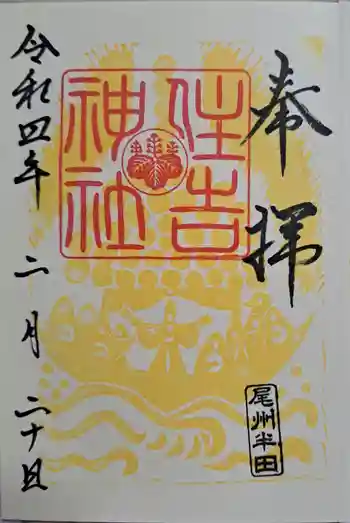 奉拝
住吉
神社
尾州半田
令和四年
二月
二十日